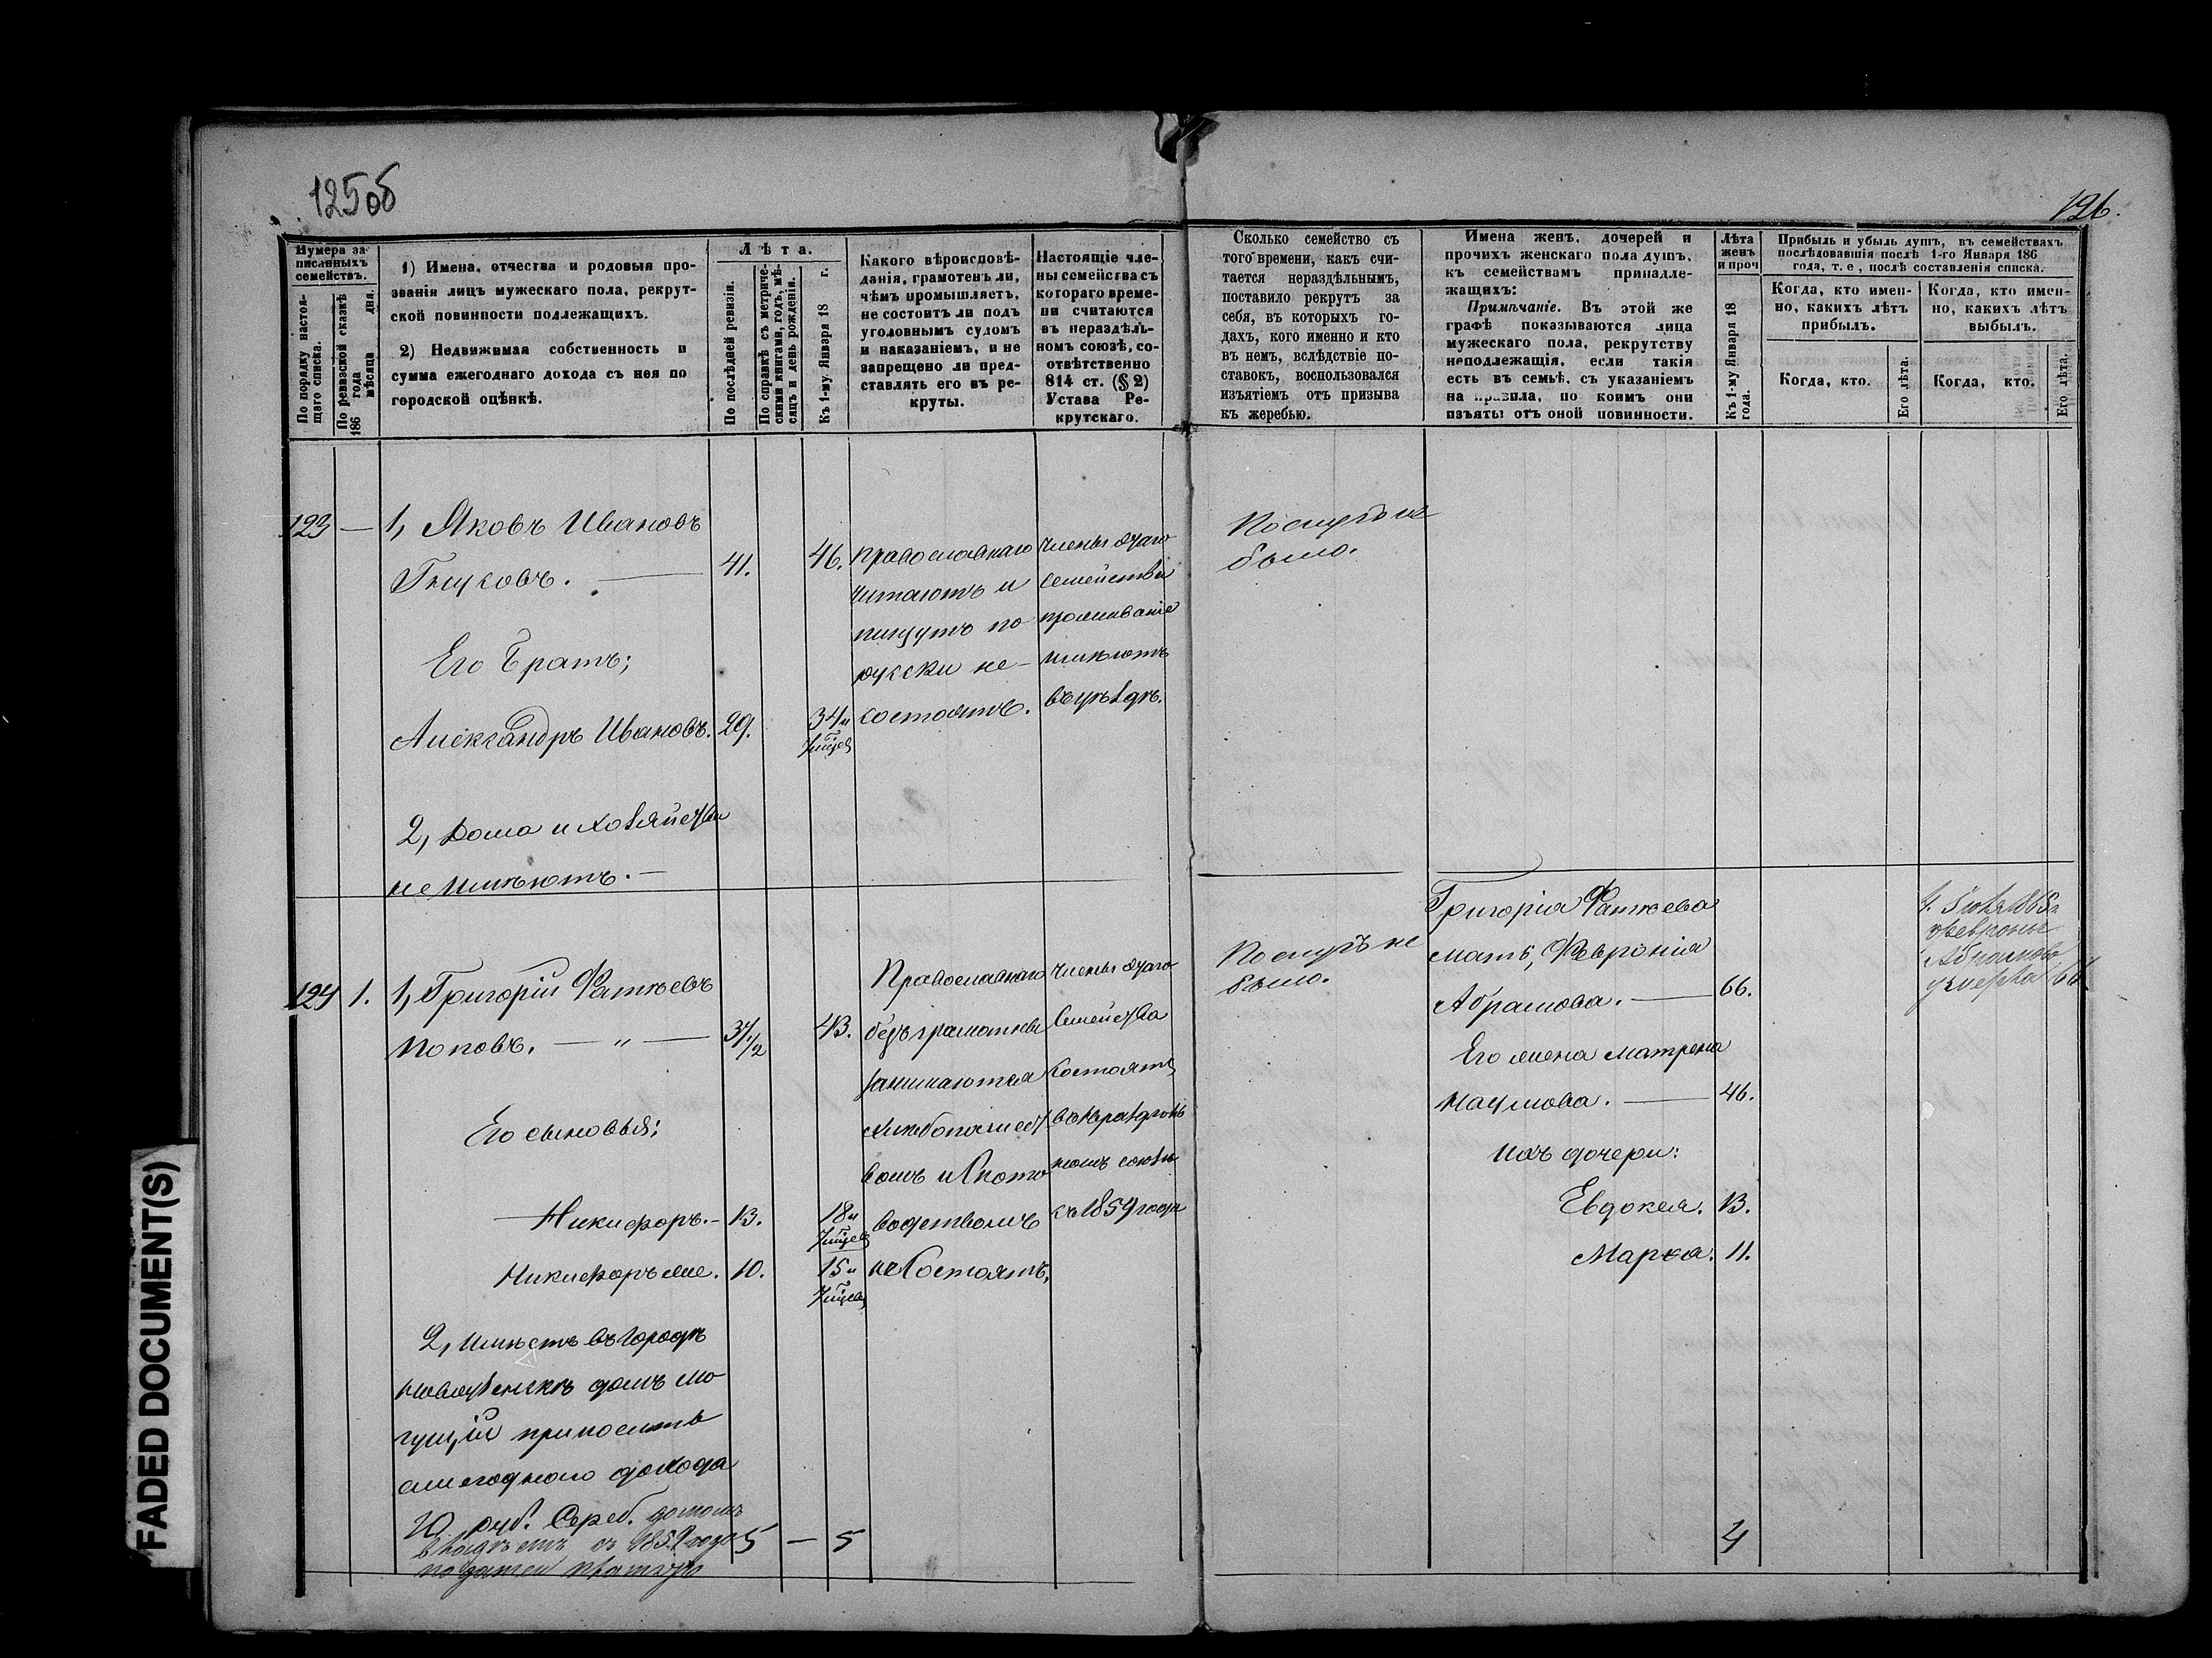 125об
126.
Нумера записанныхъ семействъ.
По порядку настоящаго списка.
По ревизской сказкѣ 186 года мѣсяца дня.
1) Имена, отчества и родовыя прозванія лицъ мужескаго пола, рекрутской повинности подлежащихъ.
2) Недвижимая собственность и сумма ежегоднаго дохода съ нея по городской оцѣнкѣ.
Лѣта.
По послѣдней ревизіи.
По справкѣ съ метрическими книгами, годъ, мѣсяцъ и день рожденія.
Къ 1-му Января 18 г.
Какого вѣроисповѣданія, грамотенъ ли, чѣмъ промышляетъ, не состоитъ ли подъ уголовнымъ судомъ и наказаніемъ, и не запрещено ли представлять его въ рекруты.
Настоящіе члены семейства съ котораго времени считаются въ нераздѣльномъ союзѣ, соотвѣтственно 814 ст. (§ 2) Устава Рекрутскаго.
Сколько семейство съ того времени, какъ считается нераздѣльнымъ, поставило рекрутъ за себя, въ которыхъ годахъ, кого именно и кто въ немъ, вслѣдствіе поставокъ, воспользовался изъятіемъ отъ призыва къ жеребью.
Имена женъ, дочерей и прочихъ женскаго пола душъ, къ семействамъ принадлежащихъ:
Примѣчаніе. Въ этой же графѣ показываются лица мужескаго пола, рекрутству неподлежащія, если такія есть въ семьѣ, съ указаніемъ на правила, по коимъ они изъяты отъ оной повинности.
Лѣта женъ и проч
Къ 1-му Января 18 года.
Прибыль и убыль душъ, въ семействахъ послѣдовавшія послѣ 1-го Января 186 года, т. е, послѣ составленія списка.
Когда, кто именно, какихъ лѣтъ прибылъ.
Когда, кто именно, какихъ лѣтъ выбылъ.
Когда, кто.
Его лѣта.
Когда, кто.
Его лѣта.
123 —
1, Яковъ Ивановъ
41.
46.
Его Братъ;
Александръ Ивановъ. 29.
34и
2, Дома и хозяйства
не имѣютъ. —
православнаго
читаютъ и
пишутъ по
русски не-
состоятъ.
члены
семейства
проживаніе
имѣютъ
было.
124 1.
1, Григорій Фатѣевъ
Поповъ. — „ — 37 1/2
43.
Его сыновья;
Никифоръ. — 13.
18и
Никифоръ же. 10.
15и
2, имѣетъ въ городѣ
домъ мо
гущій приносить
ежегоднаго дохода
10 руб. Сереб. домомъ
владѣетъ съ 1859 года
5 — 5
Православнаго
безграмотны
занимаются
хлѣбопашест
вомъ и ското
водствомъ
не состоятъ,
члены
Семейства
состоятъ
номъ союзѣ
съ 1859 года
не
было.
Григорія Фатѣева
мать, Февронія
Абрамова. — 66.
Его жена Матрена
Наумова. — 46.
Ихъ дочери:
Евдокея. 13.
Марѳа. 11.
4
Февронья
Абрамова
умерла 66
FADED DOCUMENT(S)